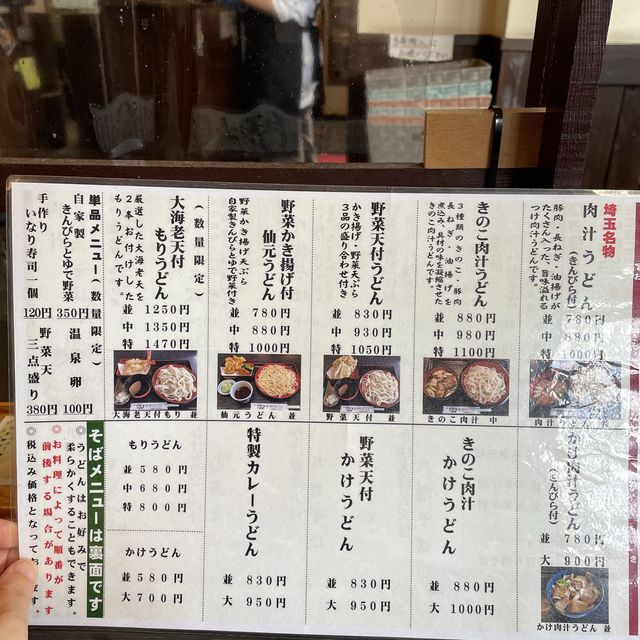 埼玉名物
肉汁うどん
(きんぴら付)
豚肉・長ねぎ・油揚げが
たくさん入った、旨味溢れる
つけ肉汁うどんです。
並 780円
中 880円
特 1000円
肉汁うどん 並
きのこ肉汁うどん
3種類のきのこ・豚肉
長ねぎ・油揚げを
煮込み、具材の味を凝縮させた
きのこ肉汁うどんです。
並 880円
中 980円
特 1100円
きのこ肉汁 中
野菜天付うどん
かき揚げ・野菜天ぷら
3品の盛り合わせ付き
並 830円
中 930円
特 1050円
野菜天 並
野菜かき揚げ付
仙元うどん
野菜かき揚げ天ぷら
自家製きんぴらとゆで野菜付き
並 780円
中 880円
特 1000円
仙元うどん 並
(数量限定)
大海老天付
もりうどん
厳選した大海老天を
2本お付けした
もりうどんです。
並 1250円
中 1350円
特 1470円
大海老天付もり 並
単品メニュー(数量限定)
自家製
きんぴらとゆで野菜
350円
手作り
いなり寿司一個
120円
温泉卵
100円
野菜天
三点盛り
380円
かけ肉汁うどん
(きんぴら付)
並 780円
大 900円
かけ肉汁うどん 並
きのこ肉汁
かけうどん
並 880円
大 1000円
野菜天付
かけうどん
並 830円
大 950円
特製カレーうどん
並 830円
大 950円
もりうどん
並 580円
中 680円
特 800円
かけうどん
並 580円
大 700円
そばメニューは裏面です
◎うどんはお好みで
柔らかくすることもできます。
◎お料理によって順番が
前後する場合があります
◎税込み価格となって
ます。